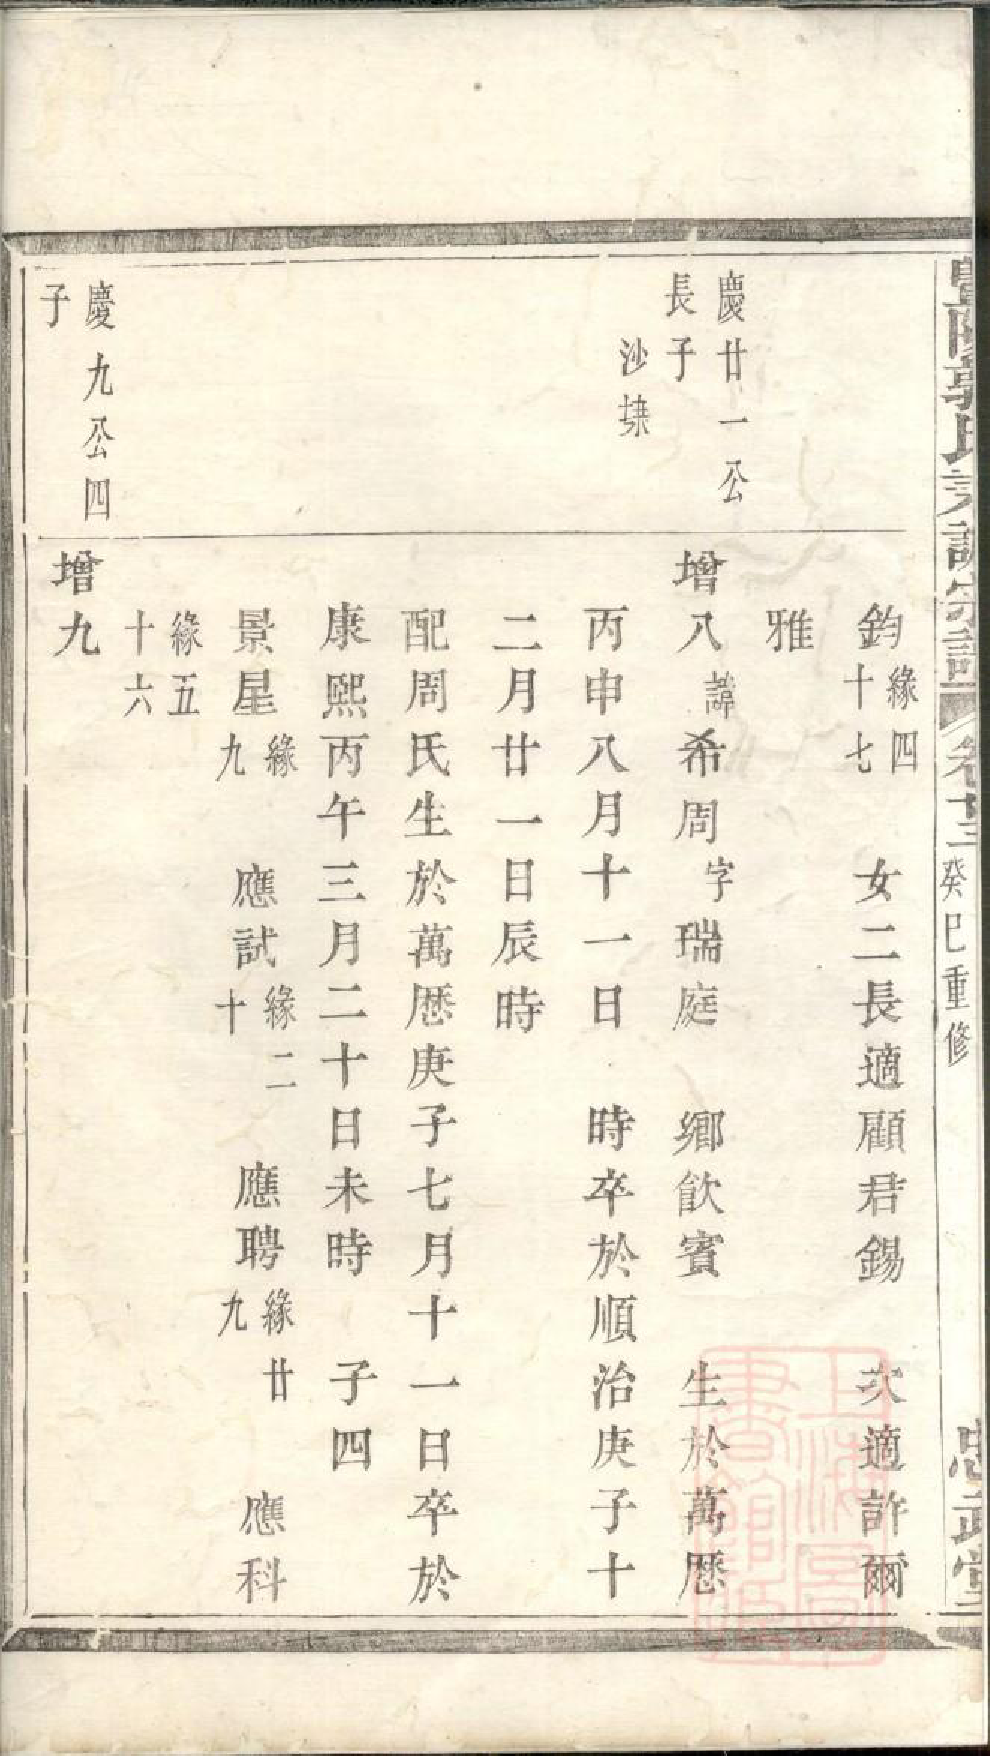 暨陽郭氏宗譜
癸巳重修
忠武堂
鈞緣四十七 女二長適顧君錫 次適許爾
雅
慶廿一公
長子
沙埭
增八諱希周字瑞庭 鄉飲賓 生於萬曆
丙申八月十一日 時卒於順治庚子十
二月廿一日辰時
配周氏生於萬曆庚子七月十一日卒於
康熙丙午三月二十日未時 子四
景星緣九 應試緣二十 應聘緣廿九 應科
緣五十六
慶九公四
子
增九